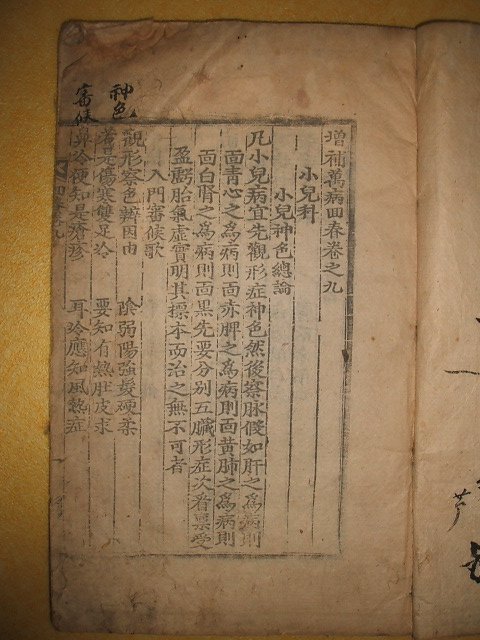 增補萬病回春卷之九
小兒科
小兒神色總論
凡小兒病宜先觀形症神色然後察脉假如肝之爲病則
面青心之爲病則面赤脾之爲病則面黃肺之爲病則
面白腎之爲病則面黑先要分別五臟形症次看禀受
盈虧胎氣虛實明其標本而治之無不可者
入門審候歌
觀形察色辨因由 陰弱陽強髮硬柔
若是傷寒雙足冷 要知有熱肚皮求
鼻冷便知是瘡疹 耳冷應知風熱症
神色
審候